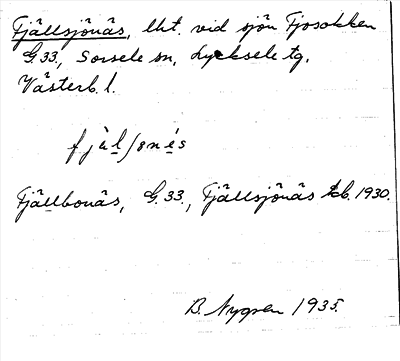 Fjällsjönäs, lht. vid sjön Fjosokken
G. 33, Sorsele sn, Lycksele tg.
Västerb. l.
fjälʃsnés
Fjällbonäs, G. 33., Fjällsjönäs Jb. 1930.
B. Nygren 1935.